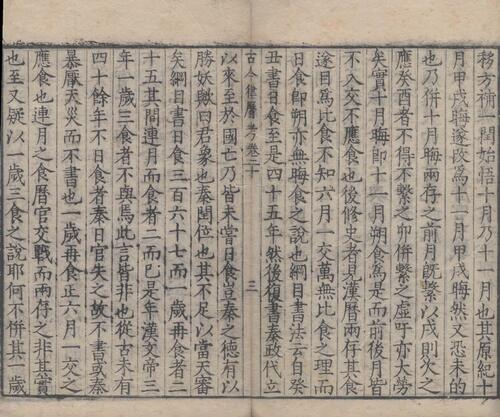 務方補一閏始悟十月乃十一月也其原紀十
月甲戌晦遂改為十一月甲戌晦然又恐未的
也乃併十月晦兩存之前月既繫以戌則次之
應癸酉者不得不繫之卯併繫之虛吁亦大勞
矣實十月晦即十一月朔食為是而前後月皆
不入交不應食也後修史者見漢曆兩存其食
遂目為比食不知六月一交萬無比食之理而
日食即朔亦無晦食之說也綱目書法云自癸
丑書日食至是四十五年然後復書秦政代立
古今律曆考卷二十
三
以來至於國亡乃皆未嘗日食豈秦之德有以
勝妖歟曰君象也秦閏位也其不足以當天審
矣綱目書日食三百六十七而一歲再食者二
十五其間連月而食者二而已是年漢文帝三
年一歲三食者不與焉此言皆非也從古未有
四十餘年不日食者秦日官失之故不書或秦
暴厭天災而不書也一歲再食正六月一交之
應食也連月之食曆官交戰而兩存之非其實
也至又疑以一歲三食之說耶何不併其一歲